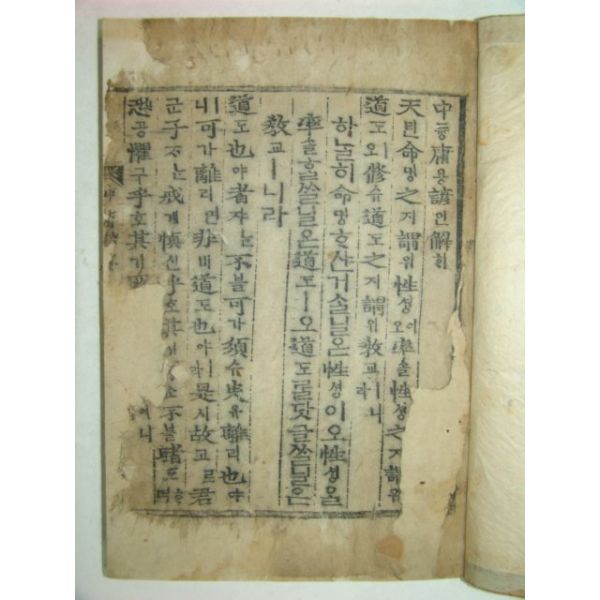 中듕庸용諺언解ᄒᆡ
天텬命명之지謂위性셩이오率솔性셩之지謂위
道도ㅣ오修슈道도之지謂위敎교ㅣ니라
하ᄂᆞᆯ히命명ᄒᆞ샨거ᄉᆞᆯ닐온性셩이오性셩을
率솔ᄒᆞᆯᄊᆞᆯ닐온道도ㅣ오道도ᄅᆞᆯ닷글ᄊᆞᆯ닐온
敎교ㅣ니라
道도也야者쟈ᄂᆞᆫ不블可가須슈臾유離리也야ㅣ
니可가離리면非비道도也야ㅣ라是시故고로君
군子ᄌᆞᄂᆞᆫ戒계愼신乎호其기所소不블睹도ᄒᆞ며
恐공懼구乎호其기所